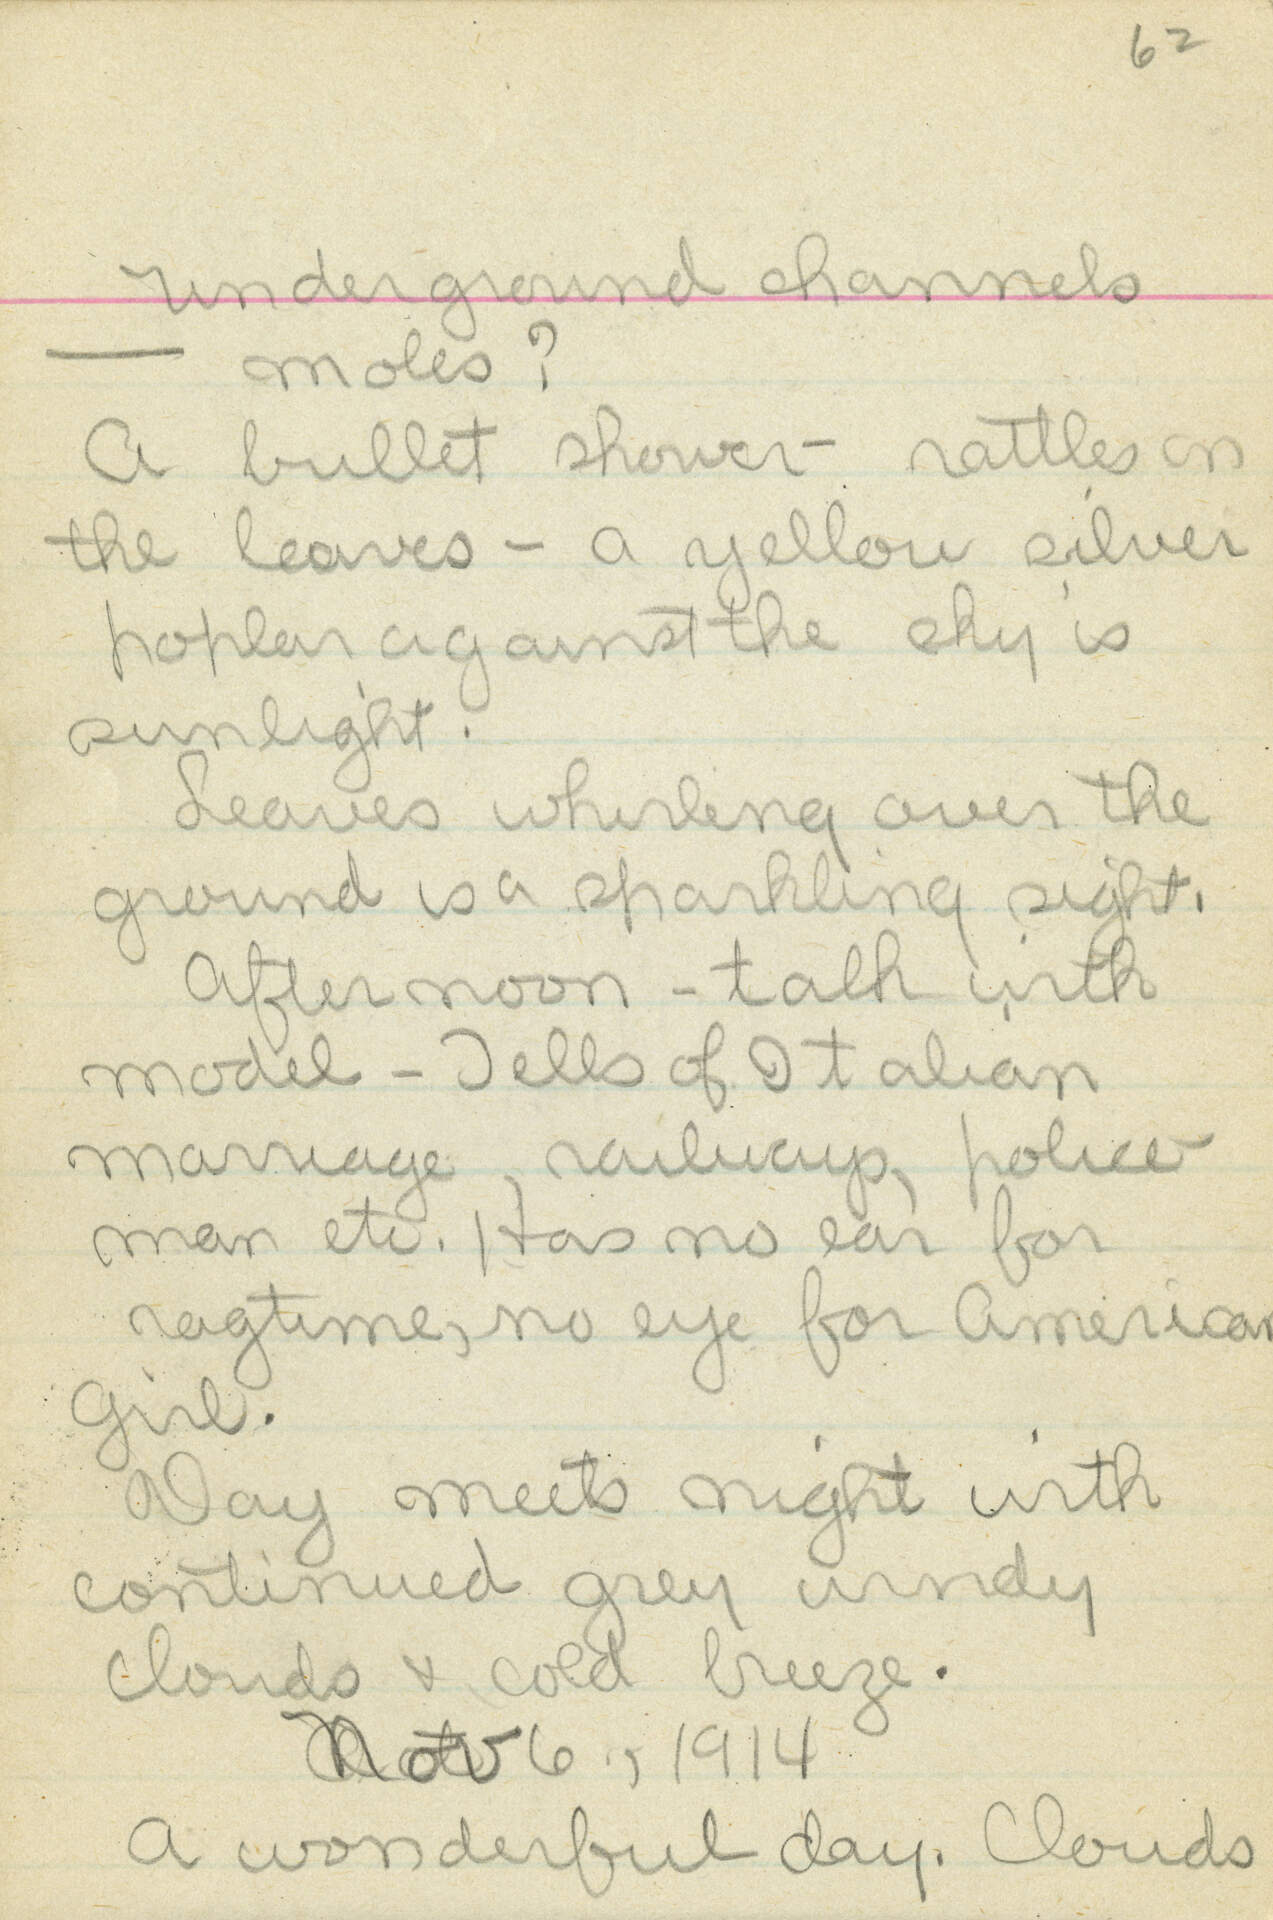 62
underground channels
— moles?
A bullet shower - rattles on
the leaves - a yellow silver
poplar against the sky is
sunlight.
Leaves whirling over the
ground is a sparkling sight.
Afternoon - talk with
model - Tells of Italian
marriage, railways, police
man etc. Has no ear for
ragtime, no eye for American
Girl.
Day meets night with
continued grey windy
clouds & cold breeze.
Nov 6, 1914
A wonderful day. Clouds